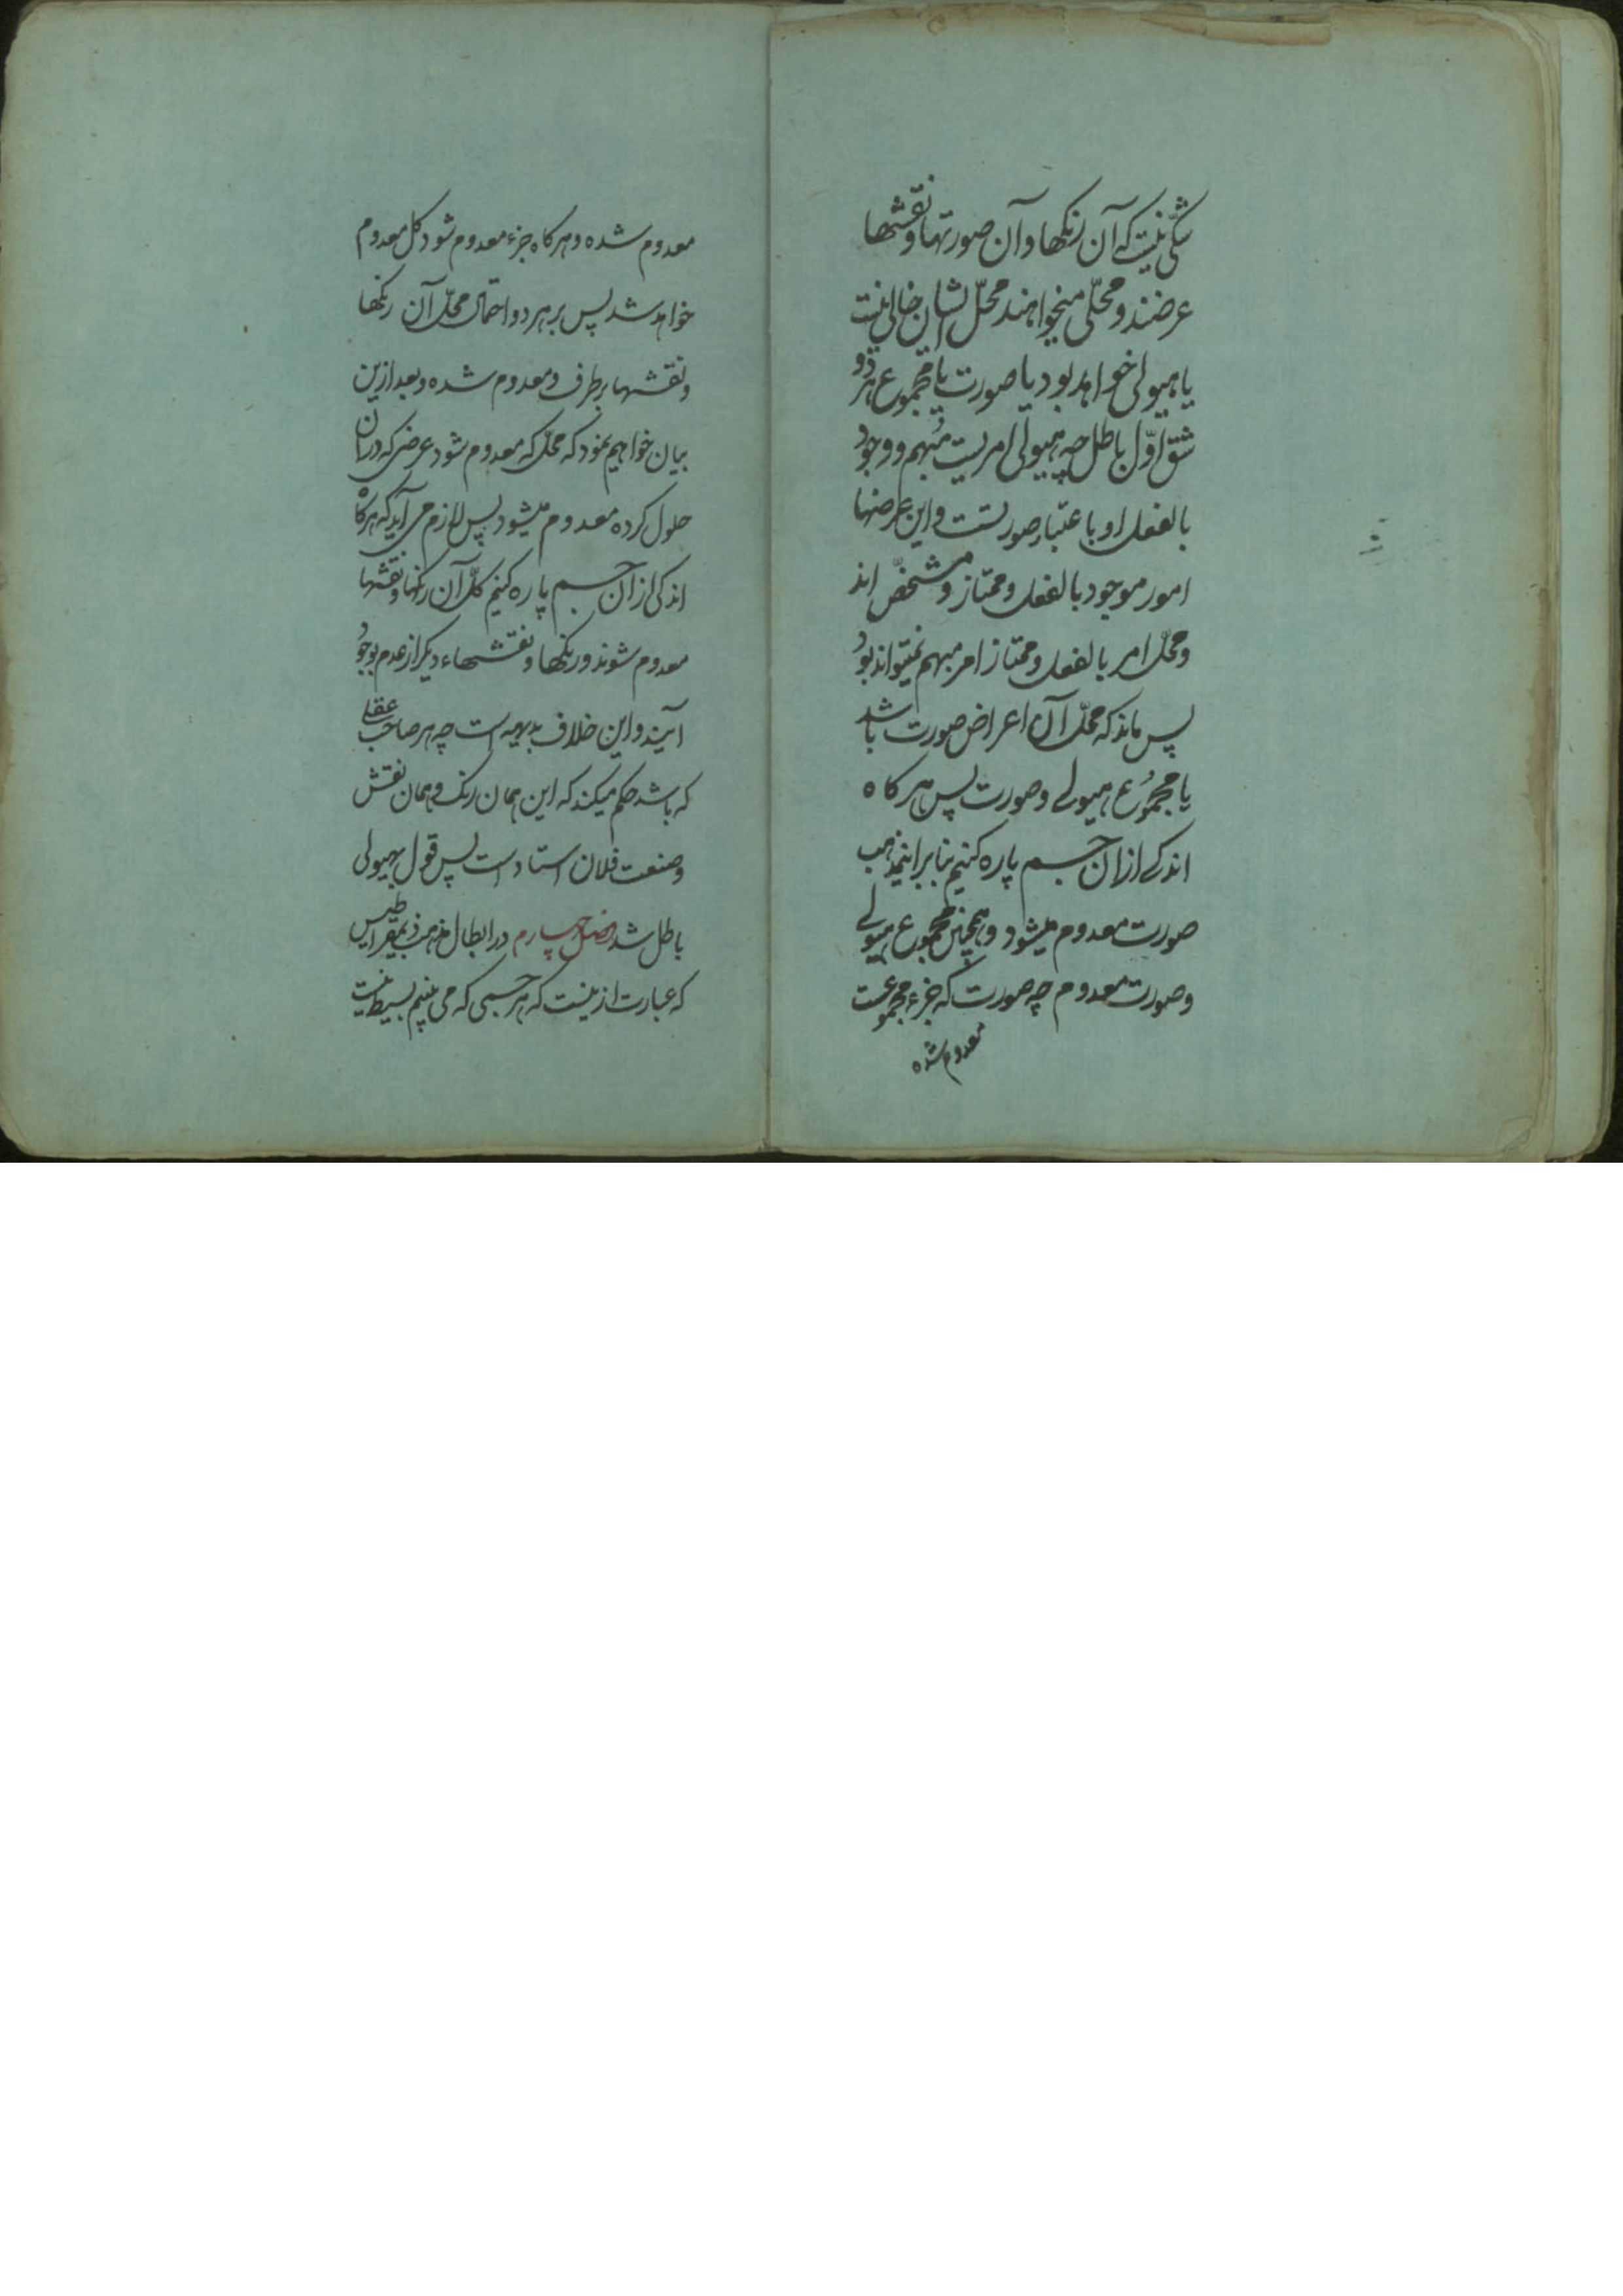 شکّی نیست که آن رنکها و آن صورتها و نقشها
عرضند و محلّی میخواهند محلّ ایشان خالی نیست
یا هیولی خواهد بود یا صورت یا مجموع هر دو
شق اوّل باطل چه هیولی امریست مُبهم و وجود
بالفعل او باعتبار صورتست و این عرضها
امور موجود بالفعل و ممتاز و مشخصّ اند
و محلّ امر بالفعل و ممتاز امر مبهم نمیتواند بود
پس ماند که محلّ آن اعراض صورت باشد
یا مجموُع هیولے و صورت پس هر کاه
اندکے از ان جسم پاره کنیم بنابر اینمذهب
صورت معدوم میشود و همچنین مجموع هیولے
و صورت معدوم چه صورت که جزء مجموعست
معدوم شده
معدوم شده و هر کاه جزء معدوم شود کل معدوم
خواهد شد پس بر هر دو احتمال محلّ آن رنکها
و نقشها برطرف و معدوم شده و بعد ازین
بیان خواهیم نمود که محلّ که معدوم شود عرضی که دران
حلول کرده معدوم میشود پس لازم می آید که هرکاه
اندکی از ان جسم پاره کنیم کلّ آن رنکها و نقشها
معدوم شوند و رنکها و نقشهاء دیکر از عدم بوجود
آیند و این خلاف بدیهه است چه هر صاحب عقلی
که باشد حکم میکند که این همان رنک و همان نقش
و صنعت فلان استاد است پس قول بهیولی
باطل شد فصل چهارم در ابطال مذهب ذیمقراطیس
که عبارت ازینست که هر جسمی که می بینیم بسیط نیست